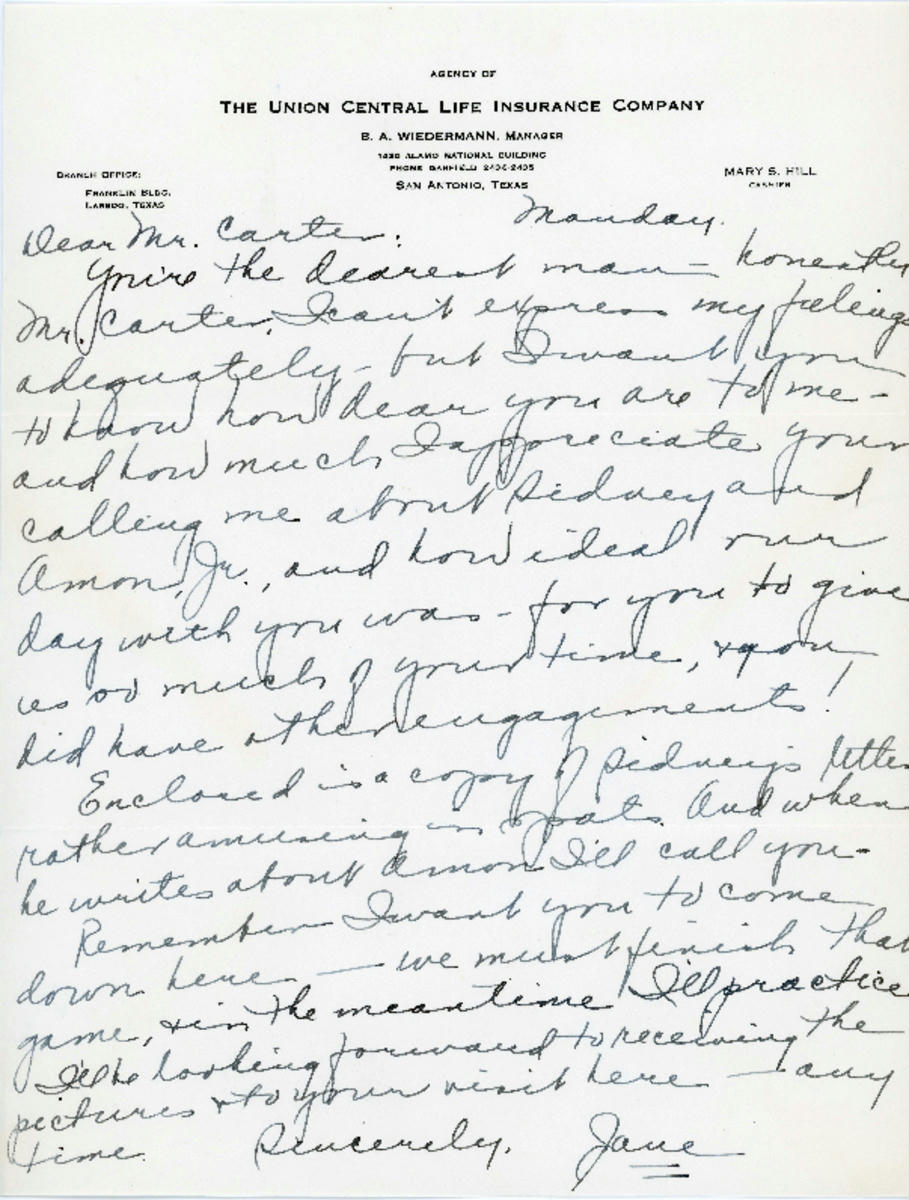 AGENCY OF
THE UNION CENTRAL LIFE INSURANCE COMPANY
B. A. WIEDERMANN, MANAGER
ALAMO NATIONAL BUILDING
PHONE GARFIELD
SAN ANTONIO, TEXAS
BRANCH OFFICE:
FRANKLIN BLDG.
LAREDO, TEXAS
MARY S. HILL
CASHIER
Monday.
Dear Mr. Carter:
You're the dearest man — honestly
Mr. Carter, I can't express my feelings
adequately - but I want you
to know how dear you are to me -
and how much I appreciate your
calling me about Sidney and
Amon, Jr., and how ideal our
day with you was - for you to give
us so much of your time, & you
did have other engagements!
Enclosed is a copy of Sidney's letter
rather amusing in spots. And when
he writes about Amon I'll call you -
Remember I want you to come
down here — we must finish that
game, & in the meantime I'll practice
I'll be looking forward to receiving the
pictures & to your visit here — any
time.
Sincerely,
Jane